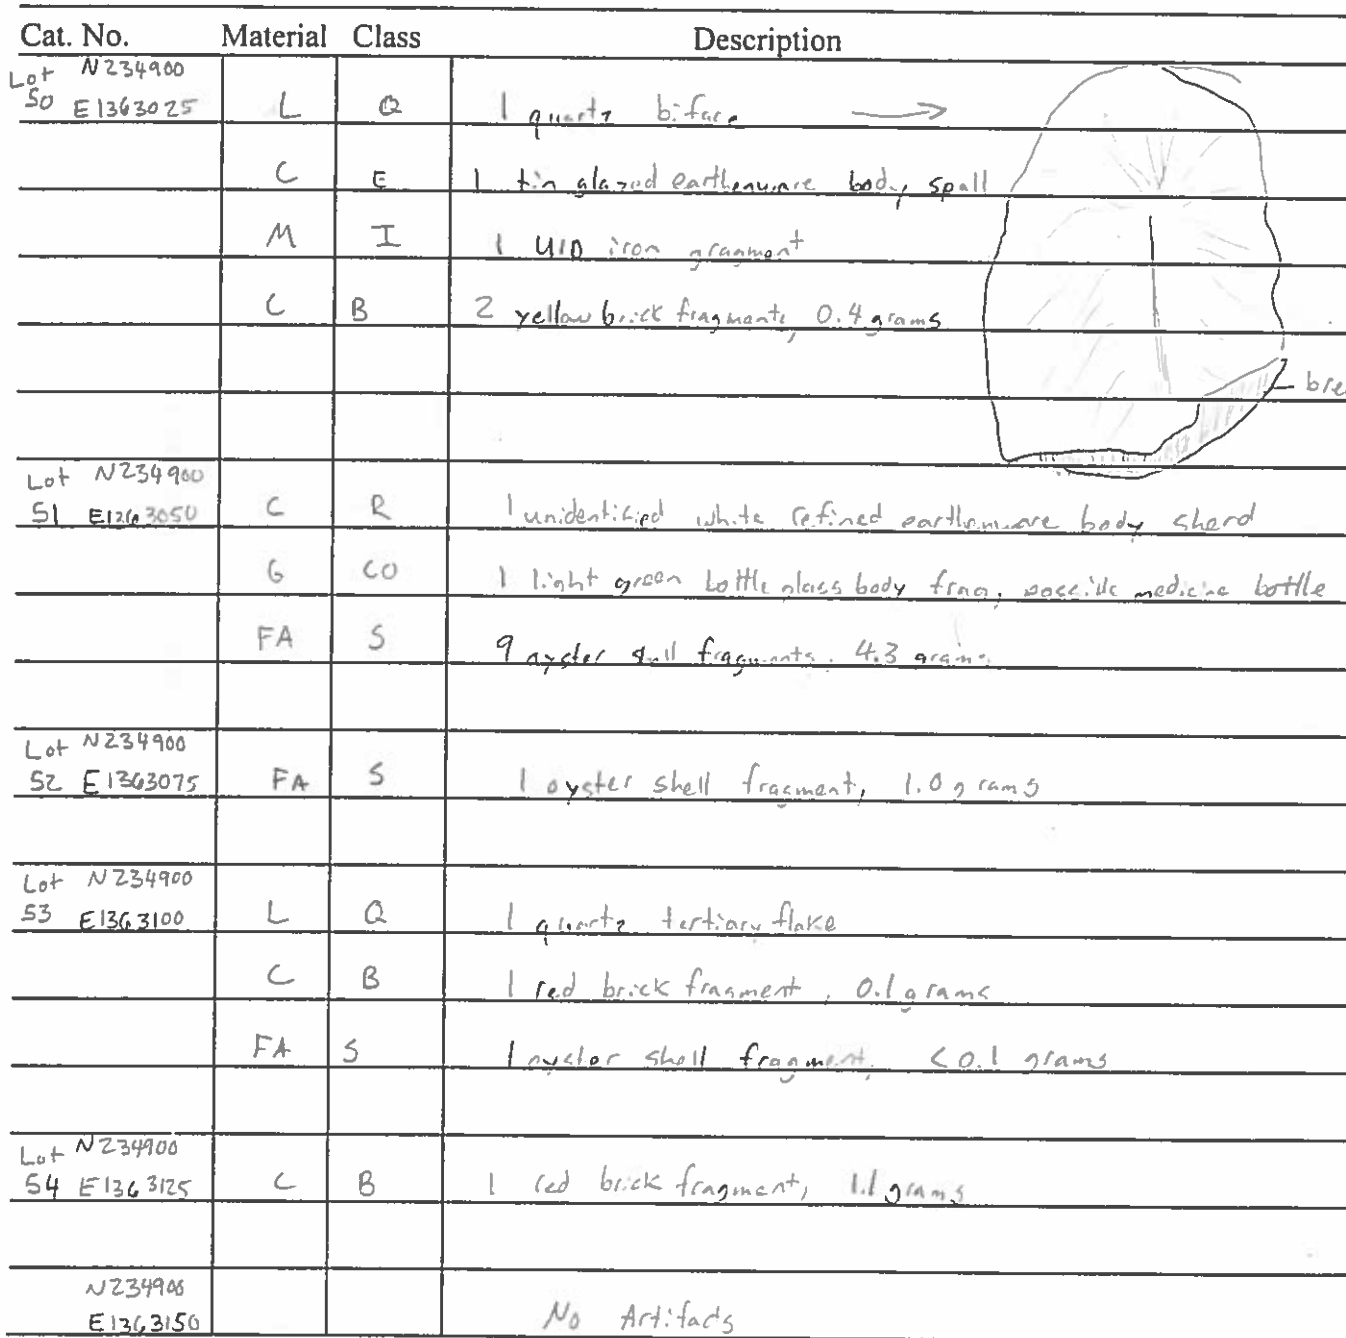 Cat. No. Material Class Description
Lot N234900
50 E1363025 L Q 1 quartz biface
C E 1 tin glazed earthenware body spall
M I 1 UID iron gragment
C B 2 yellow brick fragments, 0.4 grams
bre
Lot N234900
51 E1363050 C R 1 unidentified white refined earthenware body sherd
G CO 1 light green bottle glass body frag, possible medicine bottle
FA S 9 oyster shell fragments, 4.3 grams
Lot N234900
52 E1363075 FA S 1 oyster shell fragment, 1.0 grams
Lot N234900
53 E1363100 L Q 1 quartz tertiary flake
C B 1 red brick fragment, 0.1 grams
FA S 1 oyster shell fragment, <0.1 grams
Lot N234900
54 E1363125 C B 1 red brick fragment, 1.1 grams
N234900
E1363150 No Artifacts